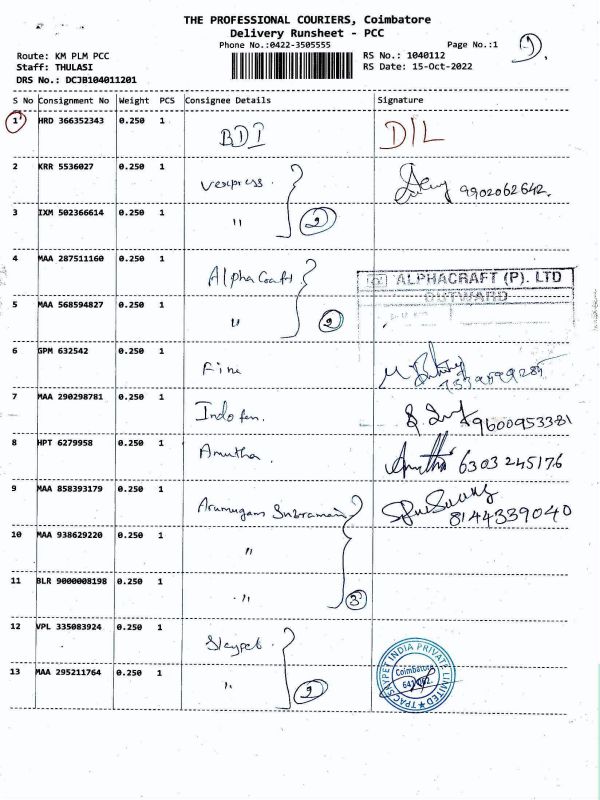 THE PROFESSIONAL COURIERS, Coimbatore
Delivery Runsheet - PCC
Phone No.:0422-3505555
Page No.:1
1
Route: KM PLM PCC
RS No.: 1040112
Staff: THULASI
RS Date: 15-Oct-2022
DRS No.: DCJB104011201
S No Consignment No Weight PCS Consignee Details Signature
1 HRD 366352343 0.250 1 BDI DIL
2 KRR 5536027 0.250 1 Vexpress. 9902062642.
3 IXM 502366614 0.250 1 " 2
4 MAA 287511160 0.250 1 AlphaCraft ALPHACRAFT (P). LTD
OUTWARD
5 MAA 568594827 0.250 1 " 2
6 GPM 632542 0.250 1 Fine
7 MAA 290298781 0.250 1 Indo fen. 9600953381
8 HPT 6279958 0.250 1 Amutha. Amutha 6303245176
9 MAA 858393179 0.250 1 Arumugam Subramani 8144339040
10 MAA 938629220 0.250 1 "
11 BLR 9000008198 0.250 1 " 3
12 VPL 335083924 0.250 1 Slaypet.
13 MAA 295211764 0.250 1 " 2
TRACSAYPET INDIA PRIVATE LIMITED
Coimbatore